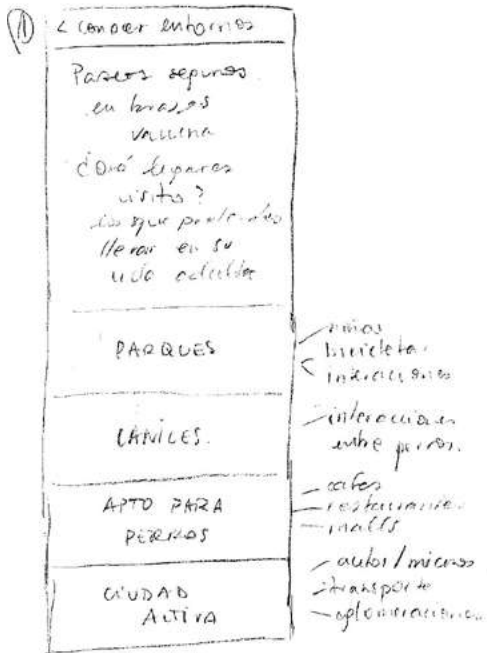 ① < Conocer entornos
Paseos seguros
en brazos
vacuna
¿Qué lugares
visito?
los que pretendes
llevar en su
vida adulta
PARQUES
niños
bicicletas
interacciones
CANILES.
interacciones
entre perros.
APTO PARA
PERROS
cafes
restaurantes
malls
CIUDAD
ACTIVA
autos/micros
transporte
aglomeraciones